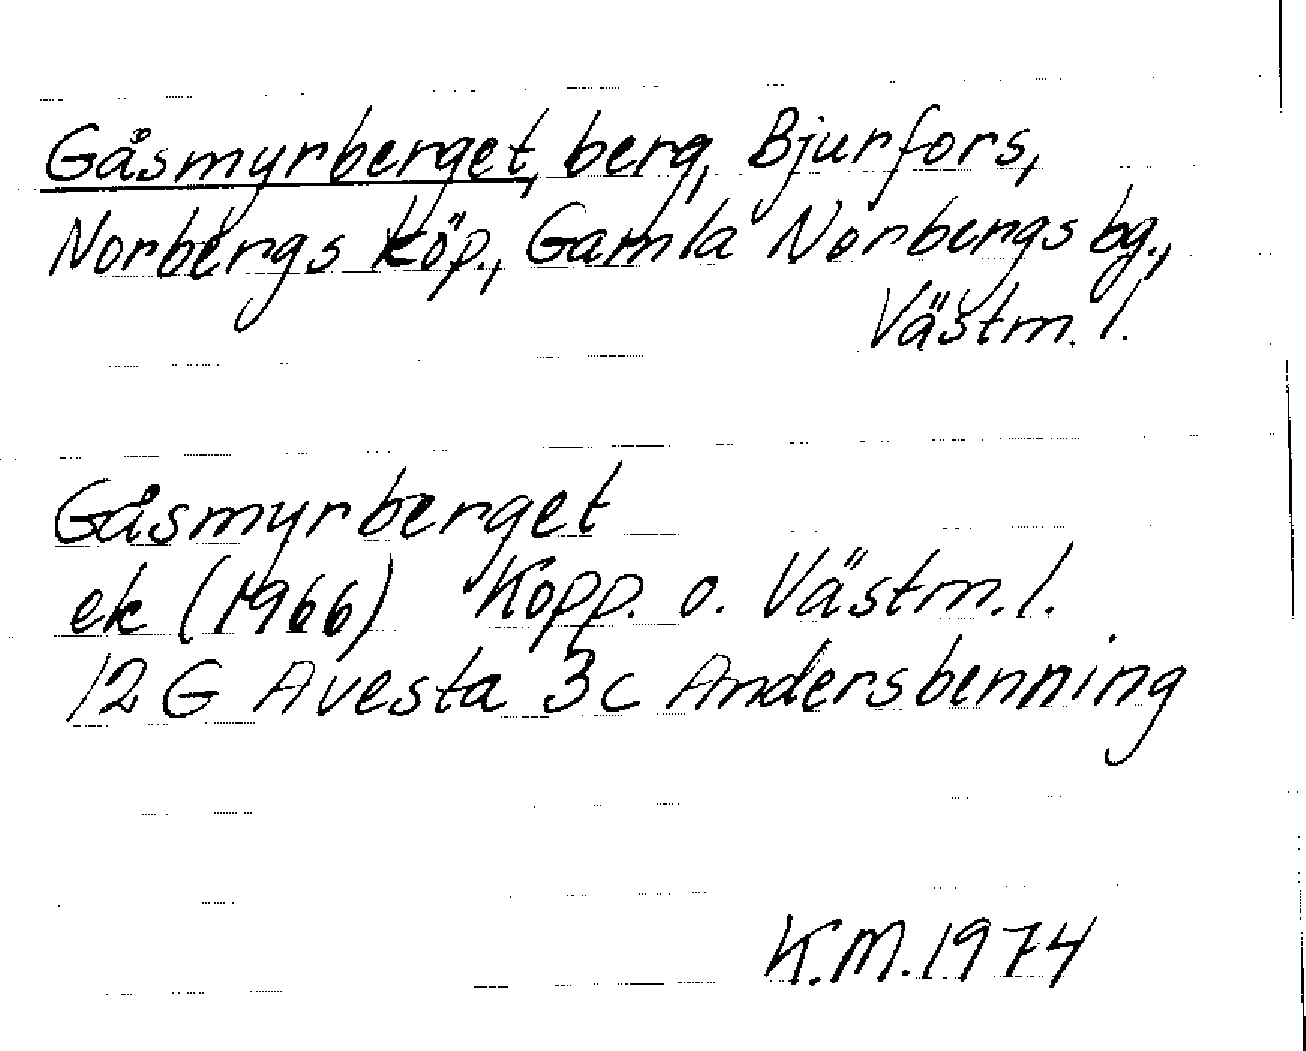 Gåsmyrberget, berg, Bjurfors,
Norbergs köp., Gamla Norbergs bg.,
Västm. l.
Gåsmyrberget
ek (1966) Kopp. o. Västm. l.
12 G Avesta 3c Andersbenning
K.M. 1974